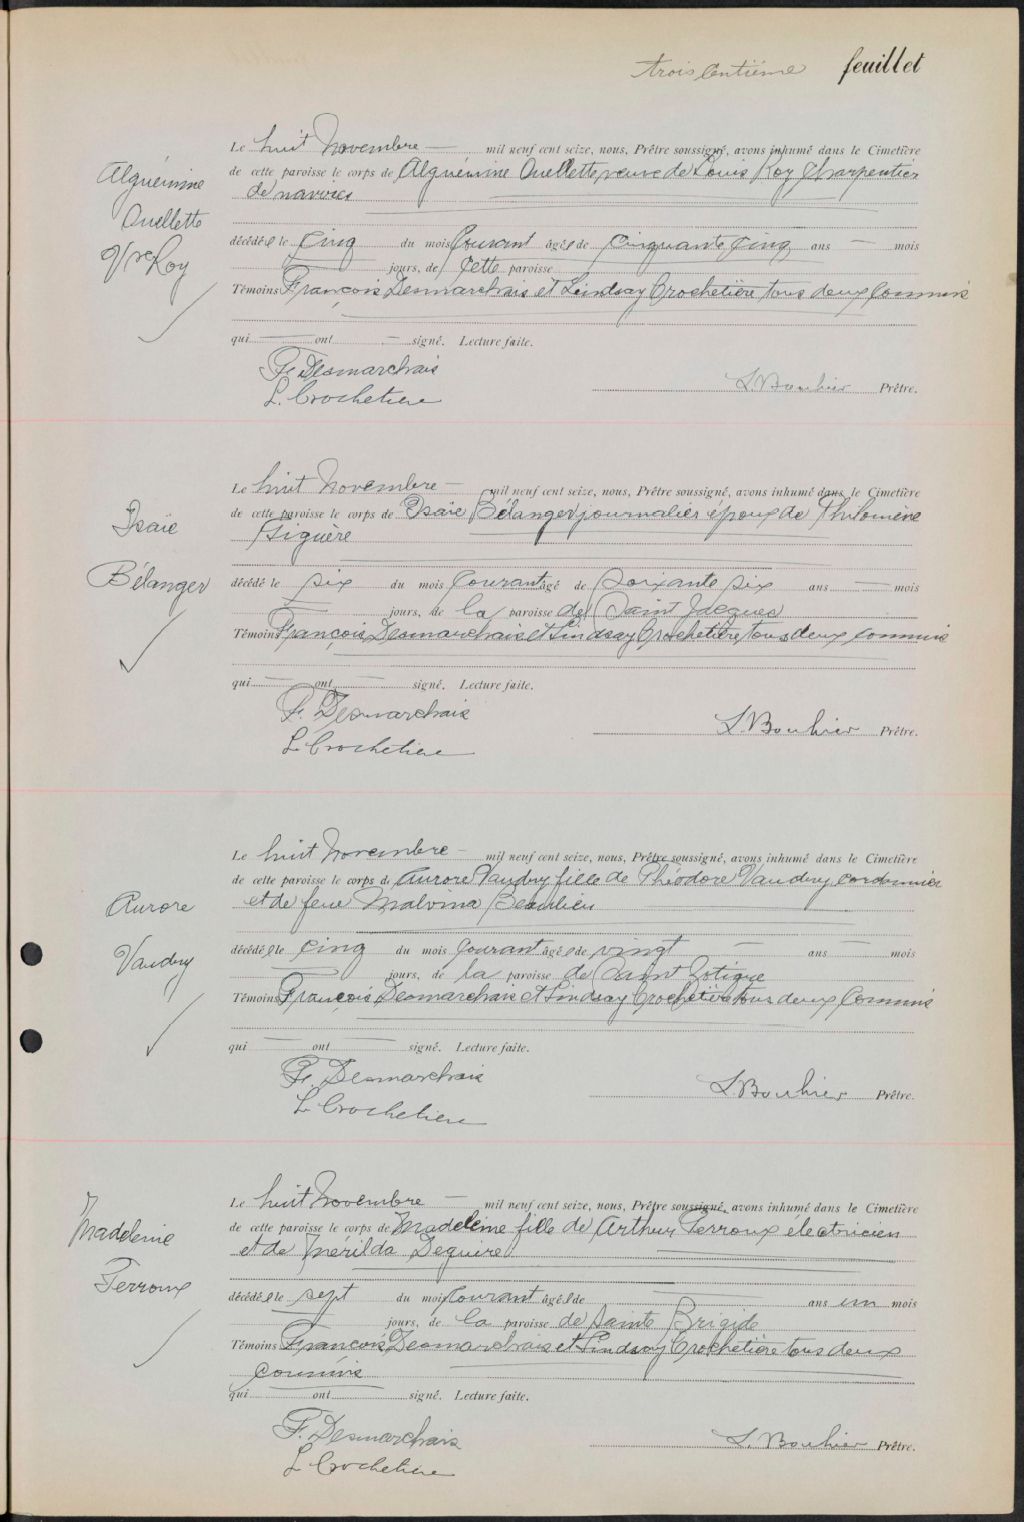 trois centième feuillet
Le huit Novembre — mil neuf cent seize, nous, Prêtre soussigné, avons inhumé dans le Cimetière
Alguémine
Ouellette
Vve Roy
de cette paroisse le corps de Alguémine Ouellette veuve de Louis Roy Charpentier
de navires
décédée le cinq du mois Courant âgée de cinquante cinq ans — mois
jours, de cette paroisse
Témoins François Desmarchais et Lindsay Crochetière tous deux Commis
qui — ont — signé. Lecture faite.
F. Desmarchais
L. Crochetiere
L. Bouhier Prêtre.
Le huit Novembre — mil neuf cent seize, nous, Prêtre soussigné, avons inhumé dans le Cimetière
Isaïe
Bélanger
de cette paroisse le corps de Isaïe Bélanger journalier époux de Philomène
Giguère
décédé le six du mois Courant âgé de soixante six ans — mois
— jours, de la paroisse de Saint Jacques
Témoins François Desmarchais et Lindsay Crochetière tous deux commis
qui — ont — signé. Lecture faite.
F. Desmarchais
L. Crochetiere
L. Bouhier Prêtre.
Le huit Novembre — mil neuf cent seize, nous, Prêtre soussigné, avons inhumé dans le Cimetière
Aurore
Vaudry
de cette paroisse le corps de Aurore Vaudry fille de Théodore Vaudry cordonnier
et de feue Malvina Beaulieu
décédée le cinq du mois Courant âgée de vingt — ans — mois
— jours, de la paroisse de Saint Zotique
Témoins François Desmarchais et Lindsay Crochetière tous deux Commis
qui — ont — signé. Lecture faite.
F. Desmarchais
L. Crochetiere
L. Bouhier Prêtre.
Le huit Novembre — mil neuf cent seize, nous, Prêtre soussigné, avons inhumé dans le Cimetière
Madeleine
Ferroux
de cette paroisse le corps de Madeleine fille de Arthur Ferroux electricien
et de Mérilda Deguire
décédée le sept du mois Courant âgée de — ans un mois
jours, de la paroisse de Sainte Brigide
Témoins François Desmarchais et Lindsay Crochetière tous deux
commis
qui — ont — signé. Lecture faite.
F. Desmarchais
L. Crochetiere
L. Bouhier Prêtre.